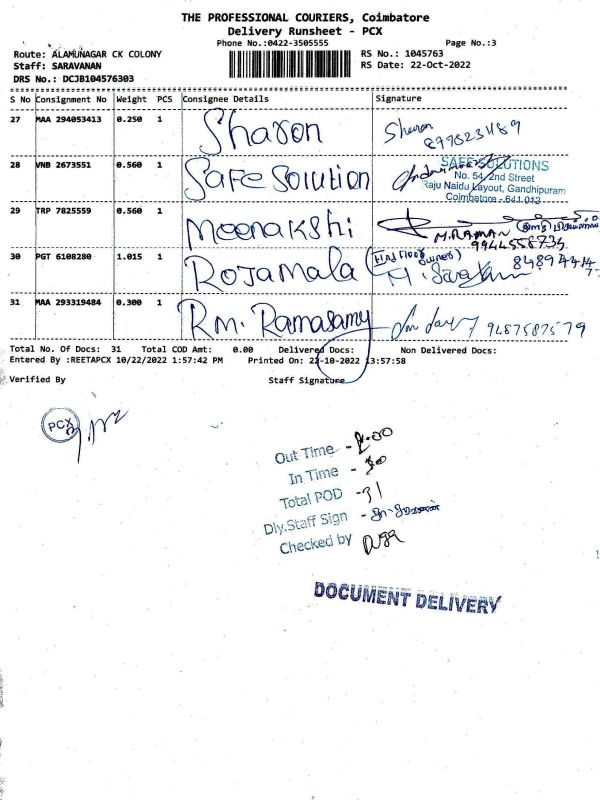 THE PROFESSIONAL COURIERS, Coimbatore
Delivery Runsheet - PCX
Phone No.:0422-3505555 Page No.:3
Route: ALAMUNAGAR CK COLONY RS No.: 1045763
Staff: SARAVANAN RS Date: 22-Oct-2022
DRS No.: DCJB104576303
S No Consignment No Weight PCS Consignee Details Signature
27 MAA 294053413 0.250 1 Sharon Sharon
28 VNB 2673551 0.560 1 Safe Solution SAFE SOLUTIONS
No. 54, 2nd Street
Raju Naidu Layout, Gandhipuram
Coimbatore - 641 012
29 TRP 7825559 0.560 1 Meenakshi
M.RAMAN
9944558734
30 PGT 6108280 1.015 1 Rojamala
31 MAA 293319484 0.300 1 Rm. Ramasamy 9487587579
Total No. Of Docs: 31 Total COD Amt: 0.00 Delivered Docs: Non Delivered Docs:
Entered By :REETAPCX 10/22/2022 1:57:42 PM Printed On: 22-10-2022 13:57:58
Verified By Staff Signature
PCX
Out Time -
In Time -
Total POD - 31
Dly.Staff Sign -
Checked by
DOCUMENT DELIVERY